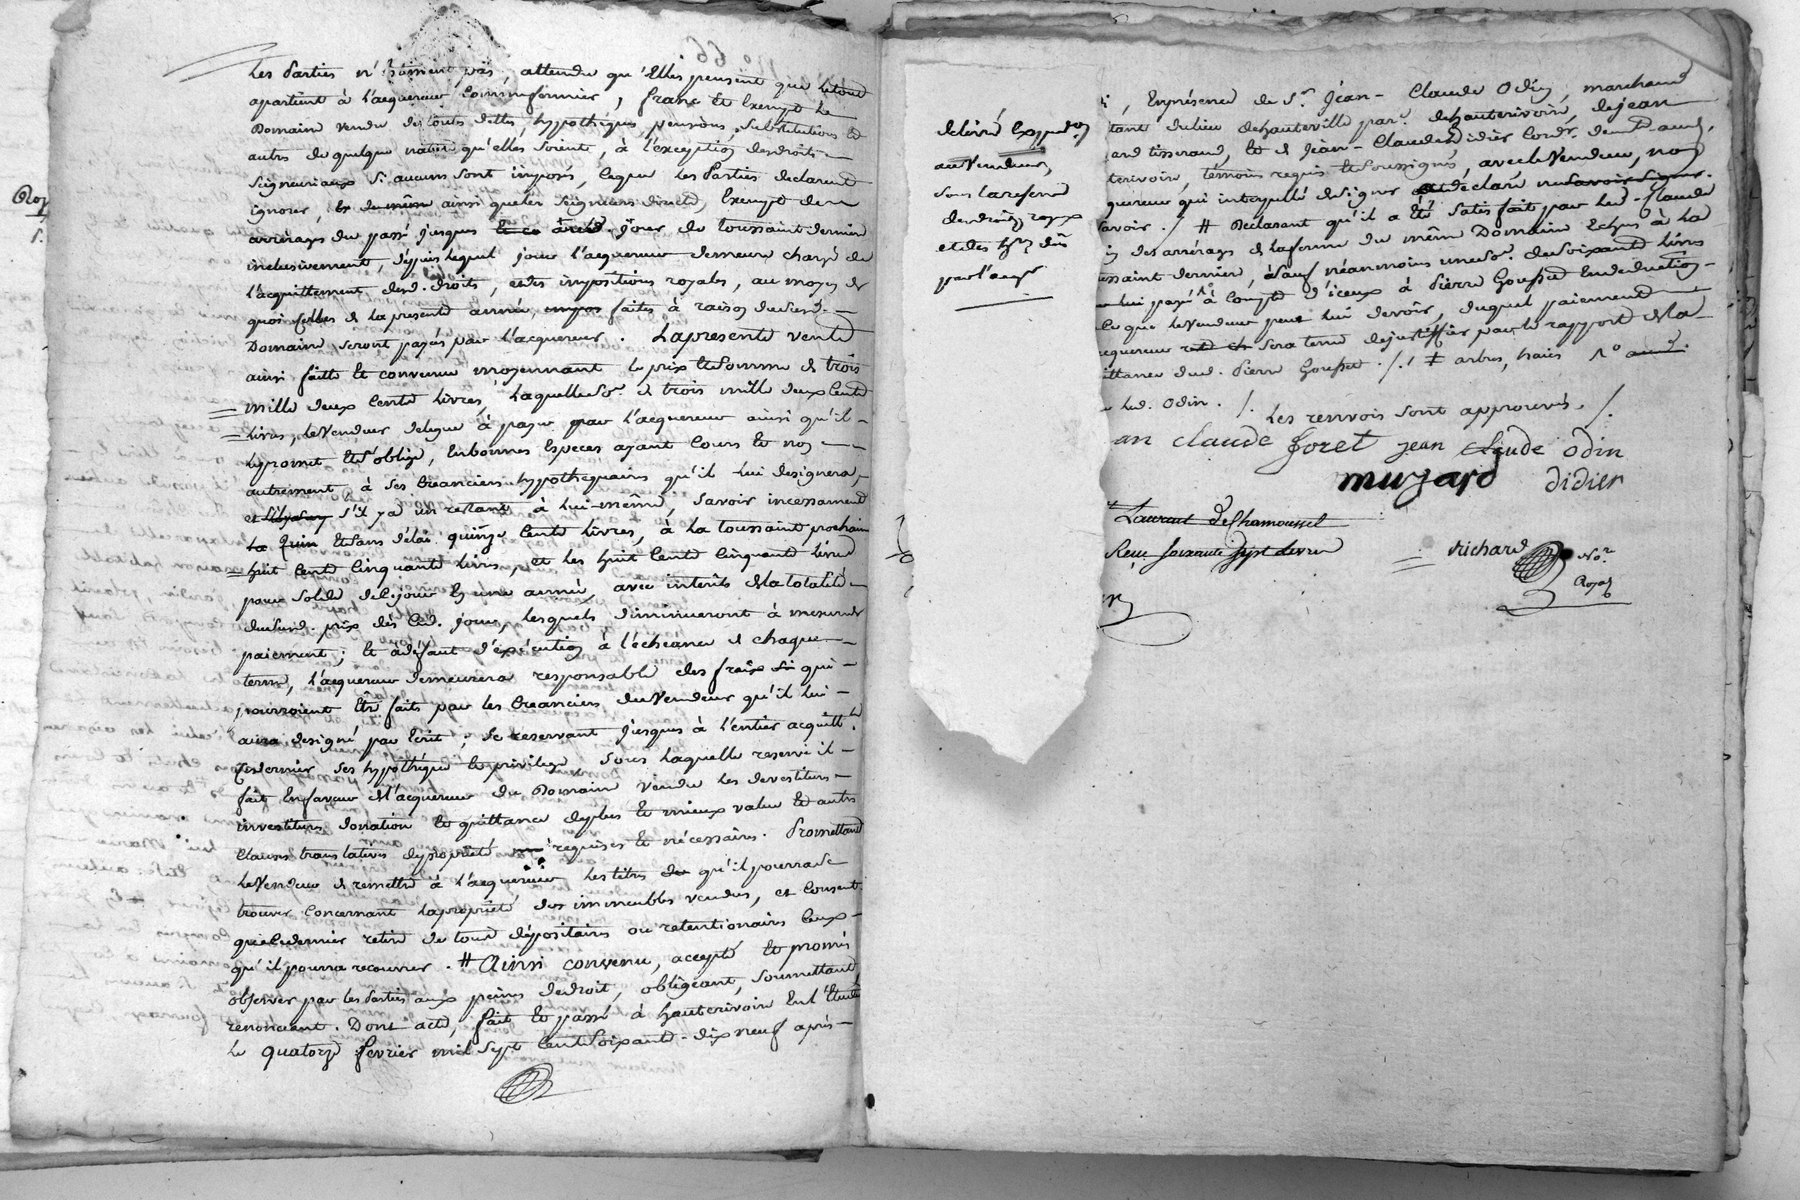 Les Parties n' pas, attendu qu'Elles pensent que le tout
apartient à l'acquereur comme fermier, franc Et Exempt le
Domaine vendu de toutes dettes, hypotheques, pensions, substitutions Et
autres de quelque nature qu'elles soient, à l'exception des droits
seigneuriaux si aucuns sont imposés, ceque les Parties declarent
ignorer, ainsi que les seigneurs directs, Exempt de
arrérages du passé jusques jour de toussaint dernier
inclusivement, depuis lequel jour l'acquereur demeure chargé de
l'acquittement desd. droits, et des impositions royales, au moyen de
quoi celles de la presente année faites à raison dudit
Domaine seront payés par l'acquereur. La presente vente
ainsi faite Et convenue moyennant le prix Et somme de trois
mille deux Cents Livres, Laquelle so.e de trois mille deux Cents
Livres, le Vendeur delegue à payer par l'acquereur ainsi qu'il
le promet Et s'oblige, En bonnes Especes ayant Cours Et non
autrement, à ses Creanciers hypothequaires qu'il lui designera,
et s'il y a un restant à lui-même, savoir incessament
Et sans délai quinze Cents Livres, à la toussaint prochain
huit Cents Cinquante Livres, et les huit Cents Cinquante Livres
pour solde delejour En une année, avec interêts de la totalité
dud. prix dès Led. jour, lesquels diminueront à mesure de
paiement; Et à défaut d'exécution à l'écheance de chaque
terme, l'acquereur demeurera responsable des fraix qui
pourroient Etre faits par les Creanciers du Vendeur qu'il lui
aura designé par Ecrit; se reservant jusques à l'entier acquitt.t
ce dernier ses hypothéque Et privilege sous laquelle reserve il
fait En faveur de l'acquereur du Domaine vendu les devestitures
investitures donation Et quittance de plus Et mieux value Et autres
Clauses translatives de proprieté requises Et nécessaires. Promettant
le Vendeur de remettre à l'acquereur les titres qu'il pourra se
trouver Concernant la proprieté des immeubles vendus, et Consent
que ce dernier retire de tous dépositaires ou retentionaires Ceux
qu'il pourra recouvrer. # Ainsi convenu, accepté Et promis
observer par les Parties aux peines de droit, obligeant, soumettant
renonceant. Dont acte, fait Et passé à hauterivoire En l'Etude
le quatorze fevrier mil Sept Cent Soixante-dix neuf après-
Roy
delivré Exped.on
au Vendeur
sous la reserve
des droits royx
et des h.res dûs
par l'acqr
, En présence de S.r Jean-Claude Odin, marchand
tant du lieu de hauteville par.e de hauterivoire, de jean
and tisserand, Et de Jean-Claude didier Cord.r demt. aud.
terivoire, témoins requis Et soussignés, avec le Vendeur, non
quereur qui interpellé de signer a déclaré ne savoir signer.
avoir./ # Declarant qu'il a été satisfait par led. Claude
des arrérages de la ferme du même Domaine Echus à la
ussaint dernier, à sauf néanmoins une so.e de soixante livres
lui payé à Compte d'iceux à Pierre Goussed En deduction
ce que le Vendeur peut lui devoir, duquel paiement
quereur sera tenu de justiffier par le rapport de la
ittance dud. Pierre Goussed ./. # arbres, haies
Led. Odin. /.
Les renvois sont approuvés. /.
an claude Joret jean claude odin
mujard didier
Laurent DeChamousset
Reçu soixante sept livres
Richard No.re
Royal